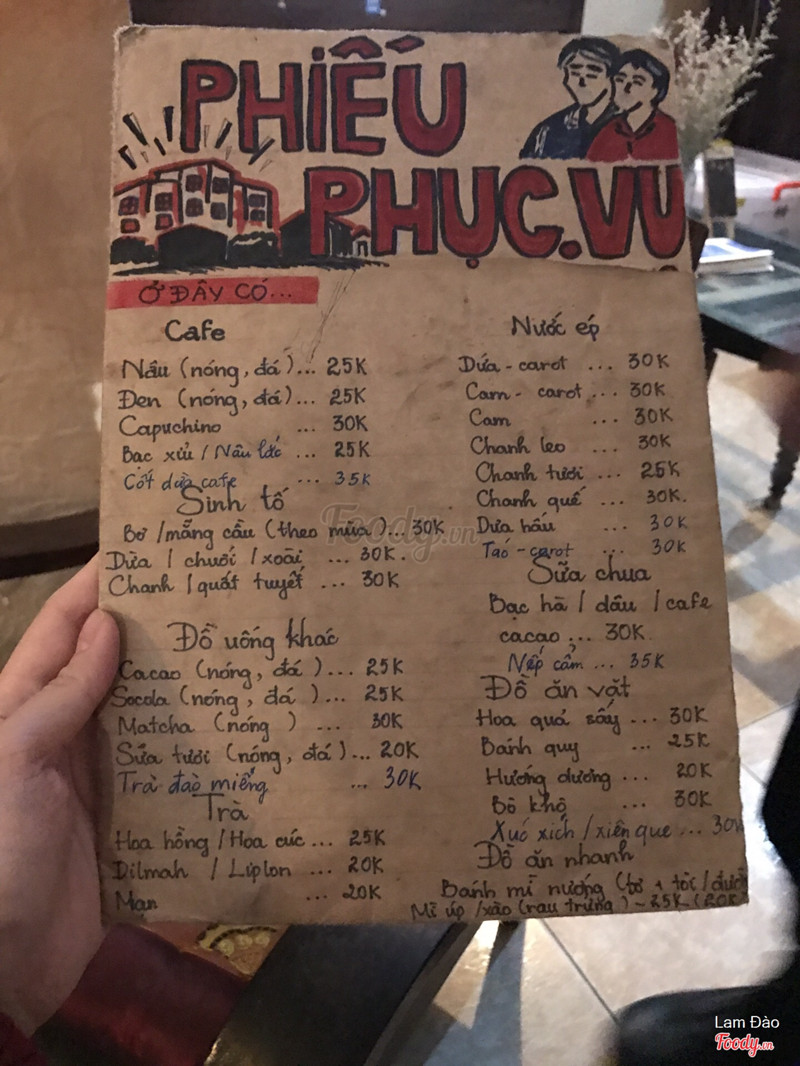 PHIẾU
PHỤC.VỤ
Ở ĐÂY CÓ...
Cafe
Nâu (nóng, đá)... 25K
Đen (nóng, đá)... 25K
Capuchino ... 30K
Bạc xủi / Nâu lắc ... 25K
Cốt dừa cafe ... 35K
Sinh tố
Bơ / mãng cầu (theo mùa)... 30K
Dừa / chuối / xoài ... 30K.
Chanh / quất tuyết ... 30K
Đồ uống khác
Cacao (nóng, đá)... 25K
Socola (nóng, đá)... 25K
Matcha (nóng) ... 30K
Sữa tươi (nóng, đá)... 20K
Trà đào miếng ... 30K
Trà
Hoa hồng / Hoa cúc ... 25K
Dilmah / Lipton ... 20K
Mạn ... 20K
Nước ép
Dứa - carot ... 30K
Cam - carot ... 30K
Cam ... 30K
Chanh leo ... 30K
Chanh tươi ... 25K
Chanh quế ... 30K.
Dưa hấu ... 30K
Táo - carot ... 30K
Sữa chua
Bạc hà / dâu / cafe
cacao ... 30K
Nếp cẩm ... 35K
Đồ ăn vặt
Hoa quả sấy ... 30K
Bánh quy ... 25K
Hướng dương ... 20K
Bò khô ... 30K
Xúc xích / xiên que ... 30K
Đồ ăn nhanh
Bánh mì nướng (bơ + tỏi /
Mì úp /xào (rau trứng) - 25K (20K)
Foody.vn
Lam Đào
Foody.vn